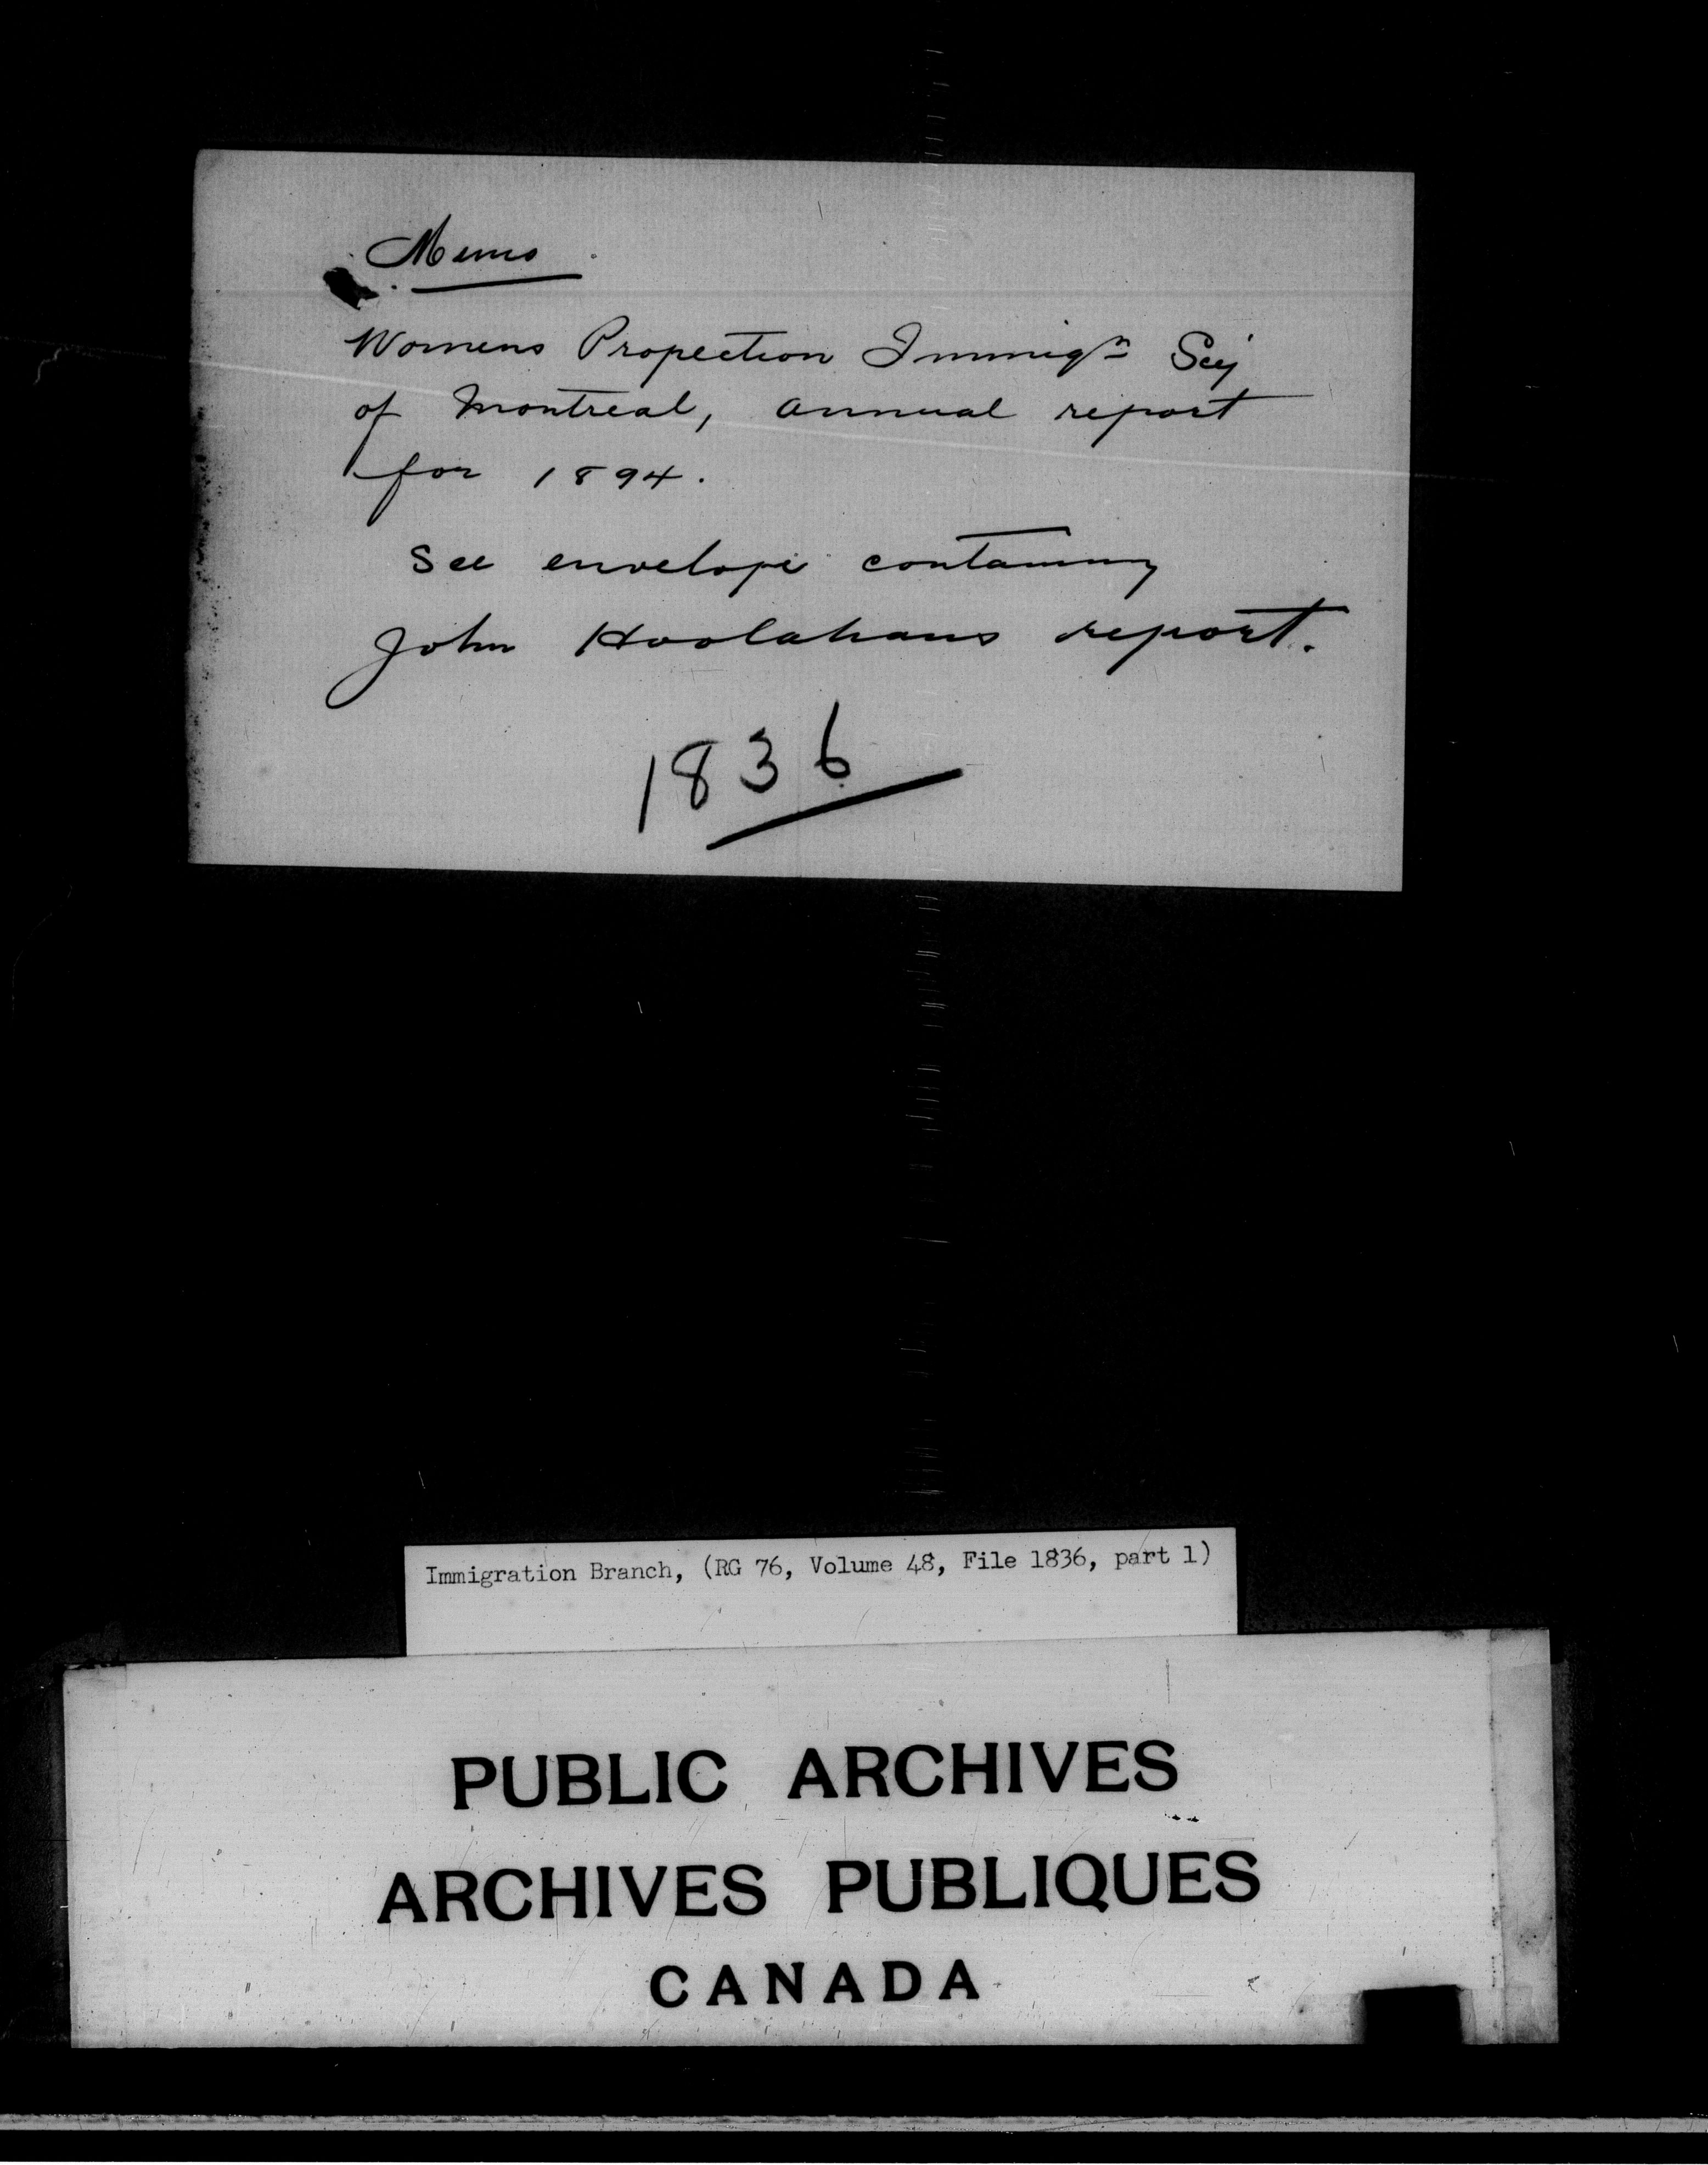 Memo
Womens Propection Immigⁿ Scy
of Montreal, annual report
for 1894.
See envelope containing
John Hoolahans report.
1836
Immigration Branch, (RG 76, Volume 48, File 1836, part 1)
PUBLIC ARCHIVES
ARCHIVES PUBLIQUES
CANADA